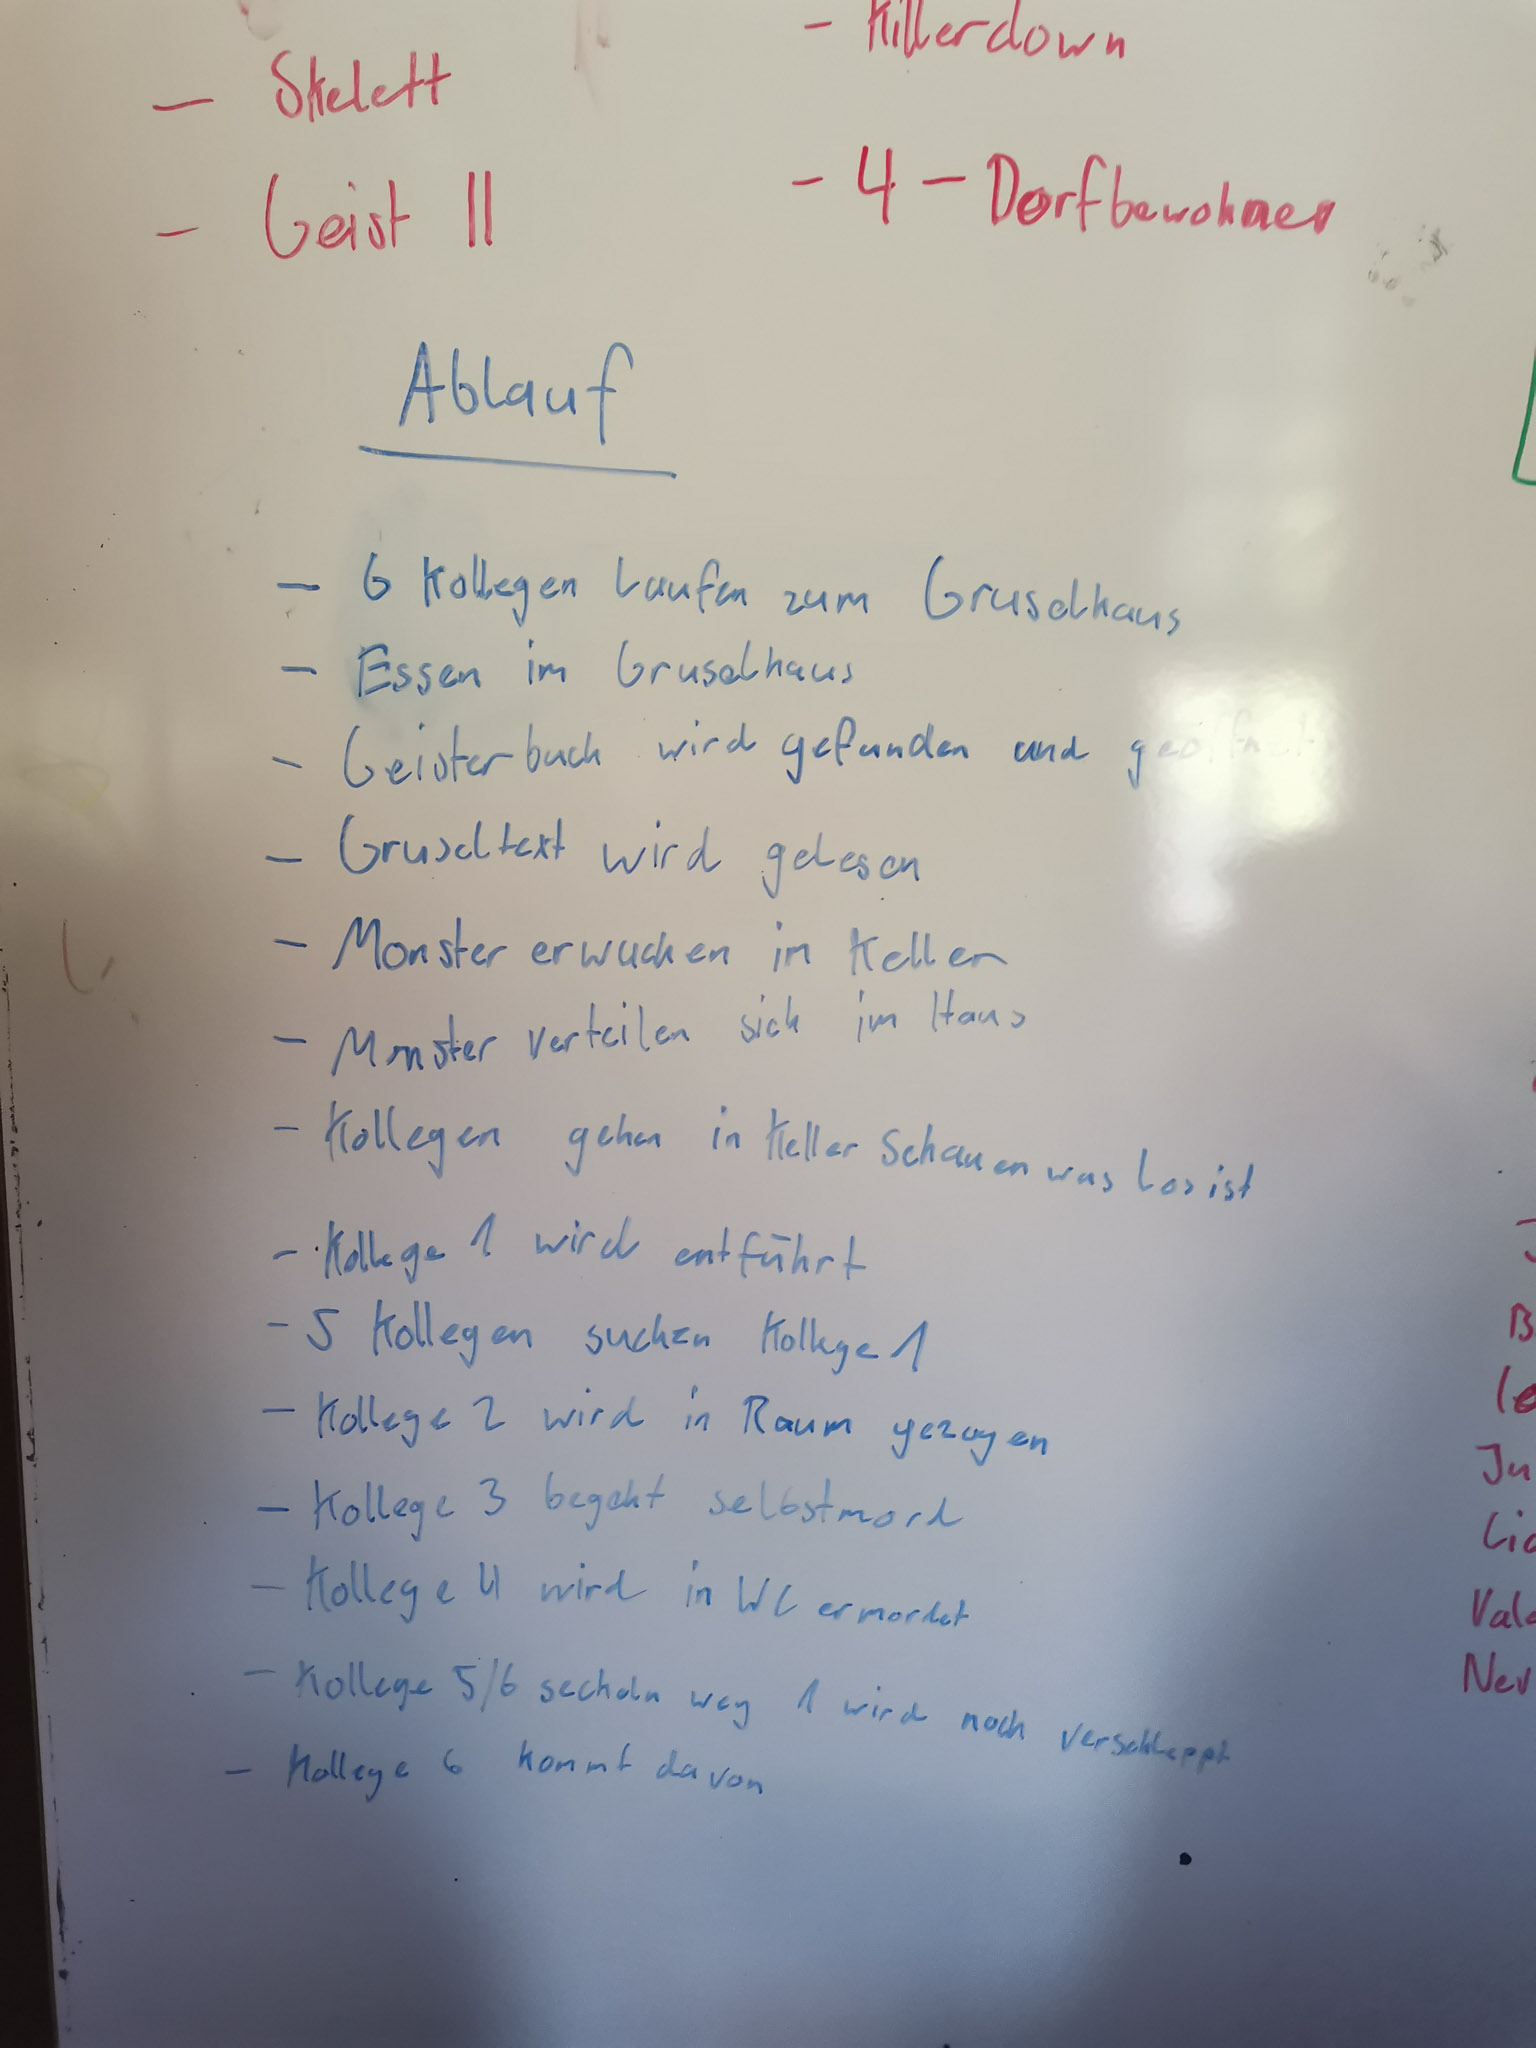 - Killerclown
- Skelett
- 4 - Dorfbewohner
- Geist II
Ablauf
- 6 Kollegen Laufen zum Gruselhaus
- Essen im Gruselhaus
- Geisterbuch wird gefunden und geöffnet
- Gruseltext wird gelesen
- Monster erwachen in Keller
- Monster verteilen sich im Haus
- Kollegen gehen in Keller Schauen was Los ist
- Kollege 1 wird entführt
- 5 Kollegen suchen Kollege 1
- Kollege 2 wird in Raum gezogen
- Kollege 3 begeht selbstmord
- Kollege 4 wird in WC ermordet
- Kollege 5/6 secheln weg 1 wird noch verschleppt
- Kollege 6 kommt davon